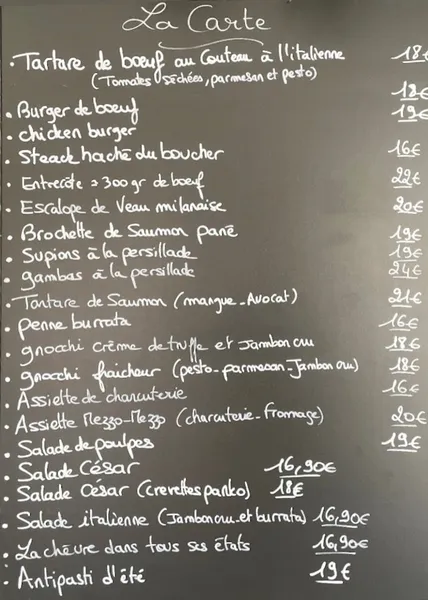 La Carte
• Tartare de boeuf au Couteau à l'italienne 18€
(Tomates séchées, parmesan et pesto)
• Burger de boeuf 18€
• chicken burger 19€
• Steack haché du boucher 16€
• Entrecôte ≥ 300 gr de boeuf 22€
• Escalope de Veau milanaise 20€
• Brochette de Saumon pané 19€
• Supions à la persillade 19€
• gambas à la persillade 24€
• Tartare de Saumon (mangue-Avocat) 21€
• penne burrata 16€
• gnocchi crème de truffe et Jambon cru 18€
• gnocchi fraîcheur (pesto-parmesan-Jambon cru) 18€
• Assiette de charcuterie 16€
• Assiette Mezzo-Mezzo (charcuterie-fromage) 20€
• Salade de poulpes 19€
• Salade César 16,90€
• Salade César (crevettes panko) 18€
• Salade italienne (Jambon cru et burrata) 16,90€
• La chèvre dans tous ses états 16,90€
• Antipasti d'été 19€